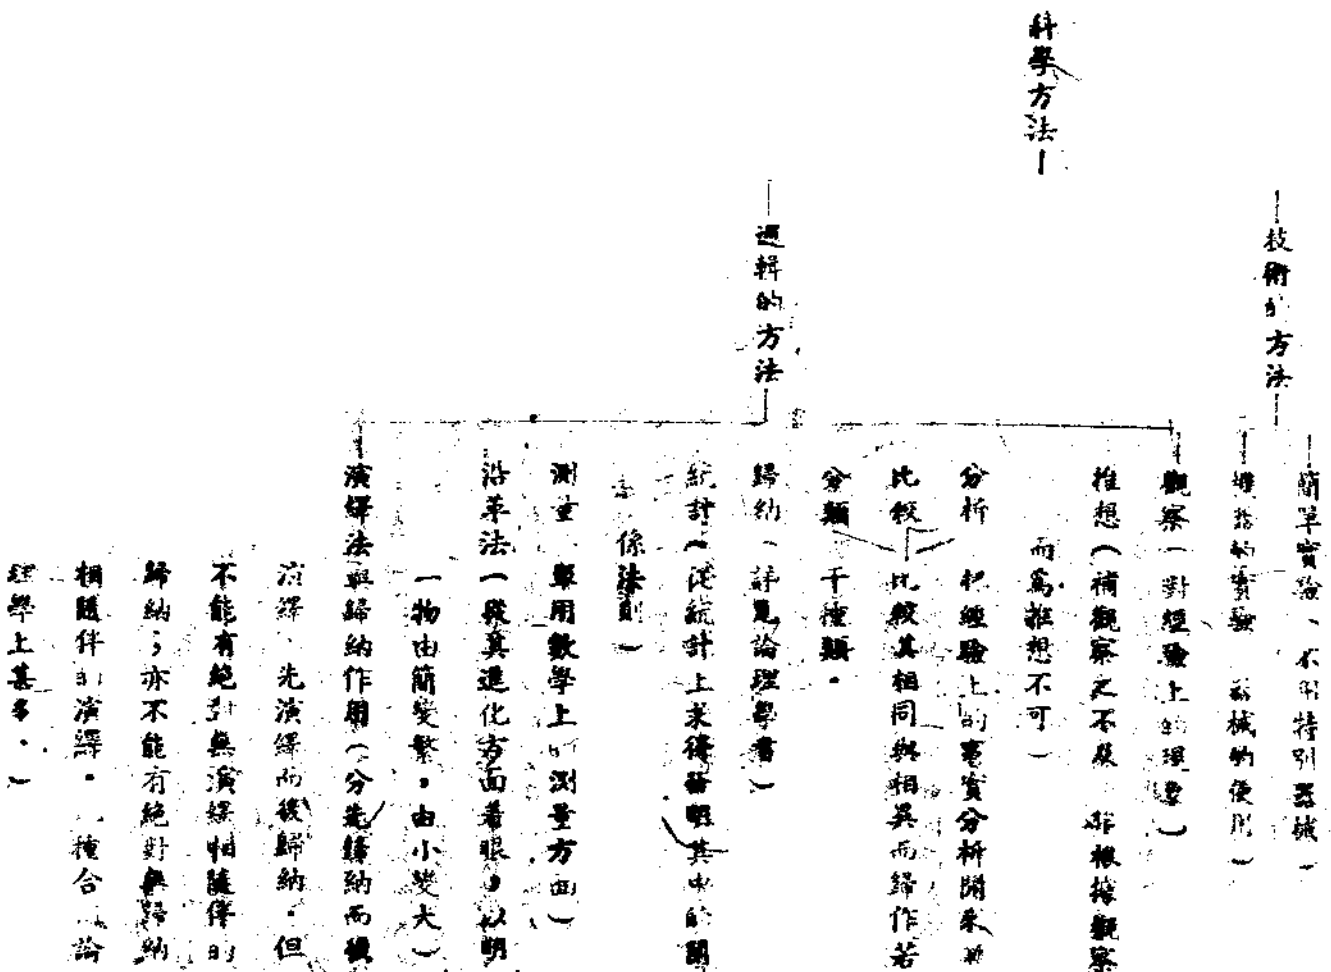 科學方法
技術的方法
簡單實驗、不用特別器械)
的實驗 器械的使用)
邏輯的方法
觀察(對經驗上的現象)
推想(補觀察之不及 非根據觀察
而爲推想不可)
分析 把經驗上的事實分析開來
比較 比較其相同與相異而歸作若
分類 干種類。
歸納(詳見論理學書)
統計(從統計上求得發明其中的關
係法則)
測量 單用數學上的測量方面)
沿革法(從其進化方面着眼,以明
一物由簡變繁,由小變大)
演繹法與歸納作用(分先歸納而後
演繹、先演繹而後歸納。但
不能有絕對無演繹相隨伴的
歸納;亦不能有絕對無歸納
相隨伴的演繹。種合論
理學上甚多。)